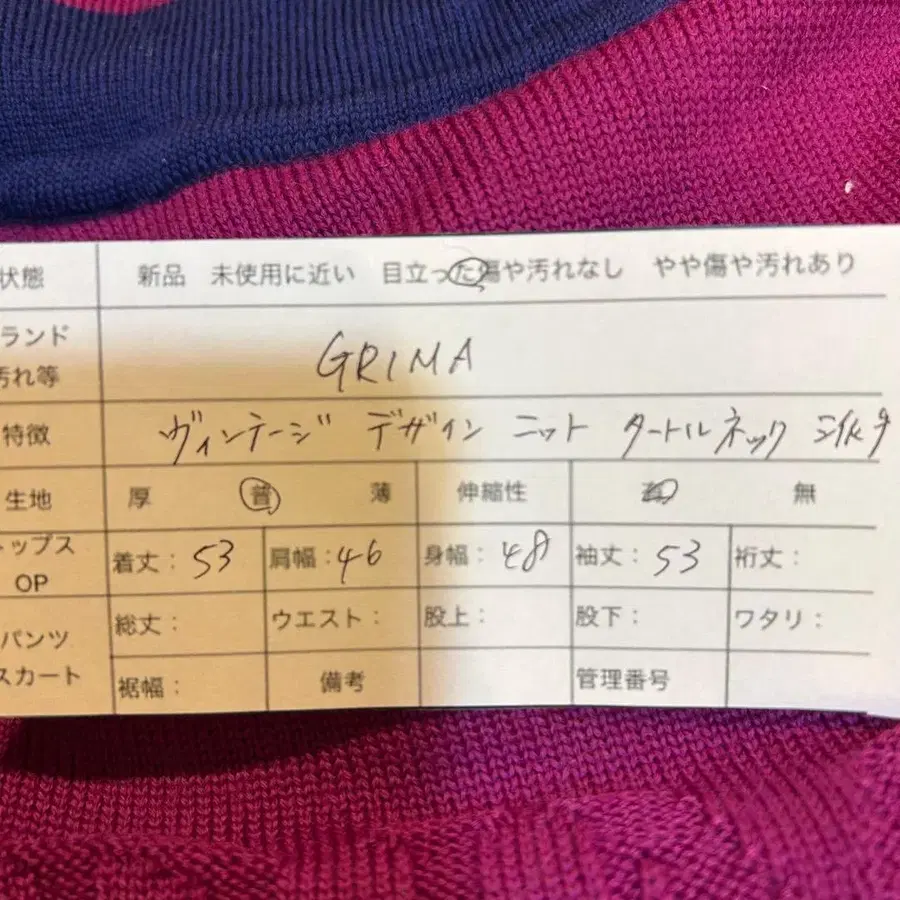 状態 新品 未使用に近い 目立った傷や汚れなし やや傷や汚れあり
ランド
汚れ等 GRIMA
特徴 ヴィンテージ デザイン ニット タートルネック
生地 厚 普 薄 伸縮性 有 無
トップス
OP 着丈: 53 肩幅: 46 身幅: 48 袖丈: 53 裄丈:
パンツ
スカート 総丈: ウエスト: 股上: 股下: ワタリ:
裾幅: 備考 管理番号